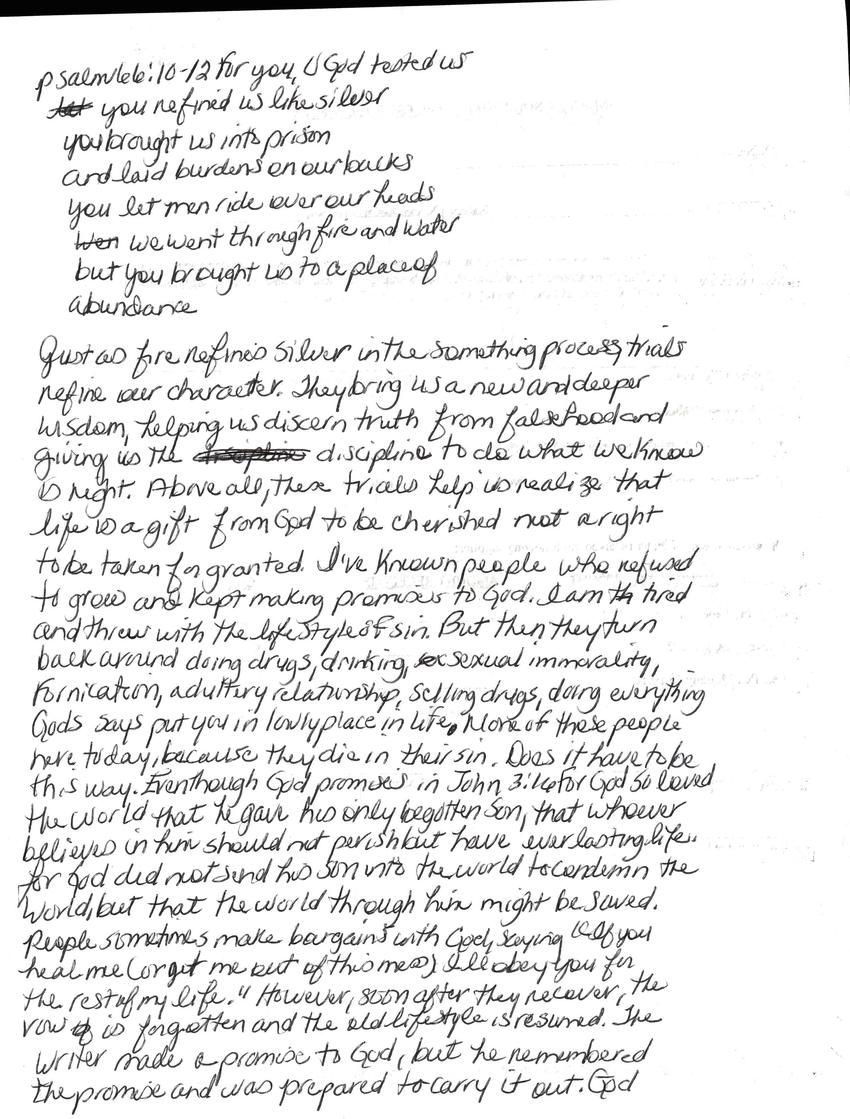 Psalm 66:10-12 for you, O God tested us
you refined us like silver
you brought us into prison
and laid burdens on our backs
you let men ride over our heads
we went through fire and water
but you brought us to a place of
abundance
Just as fire refines silver in the something process, trials
refine our character. They bring us a new and deeper
wisdom, helping us discern truth from falsehood and
giving us the discipline to do what we know
is right. Above all, these trials help us realize that
life is a gift from God to be cherished not a right
to be taken for granted. I've known people who refused
to grow and kept making promises to God. I am tired
and threw with the lifestyle of sin. But then they turn
back around doing drugs, drinking, sexual immorality,
fornication, adultery relationship, selling drugs, doing everything
Gods says put you in lowly place in life. None of these people
here today, because they die in their sin. Does it have to be
this way. Eventhough God promises in John 3:16 for God so loved
the world that he gave his only begotten Son, that whoever
believes in him should not perish but have everlasting life.
for God did not send his son into the world to condemn the
world, but that the world through him might be saved.
People sometimes make bargains with God, saying "If you
heal me (or get me out of this mess) I'll obey you for
the rest of my life." However, soon after they recover, the
vow is forgotten and the old lifestyle is resumed. The
writer made a promise to God, but he remembered
the promise and was prepared to carry it out. God